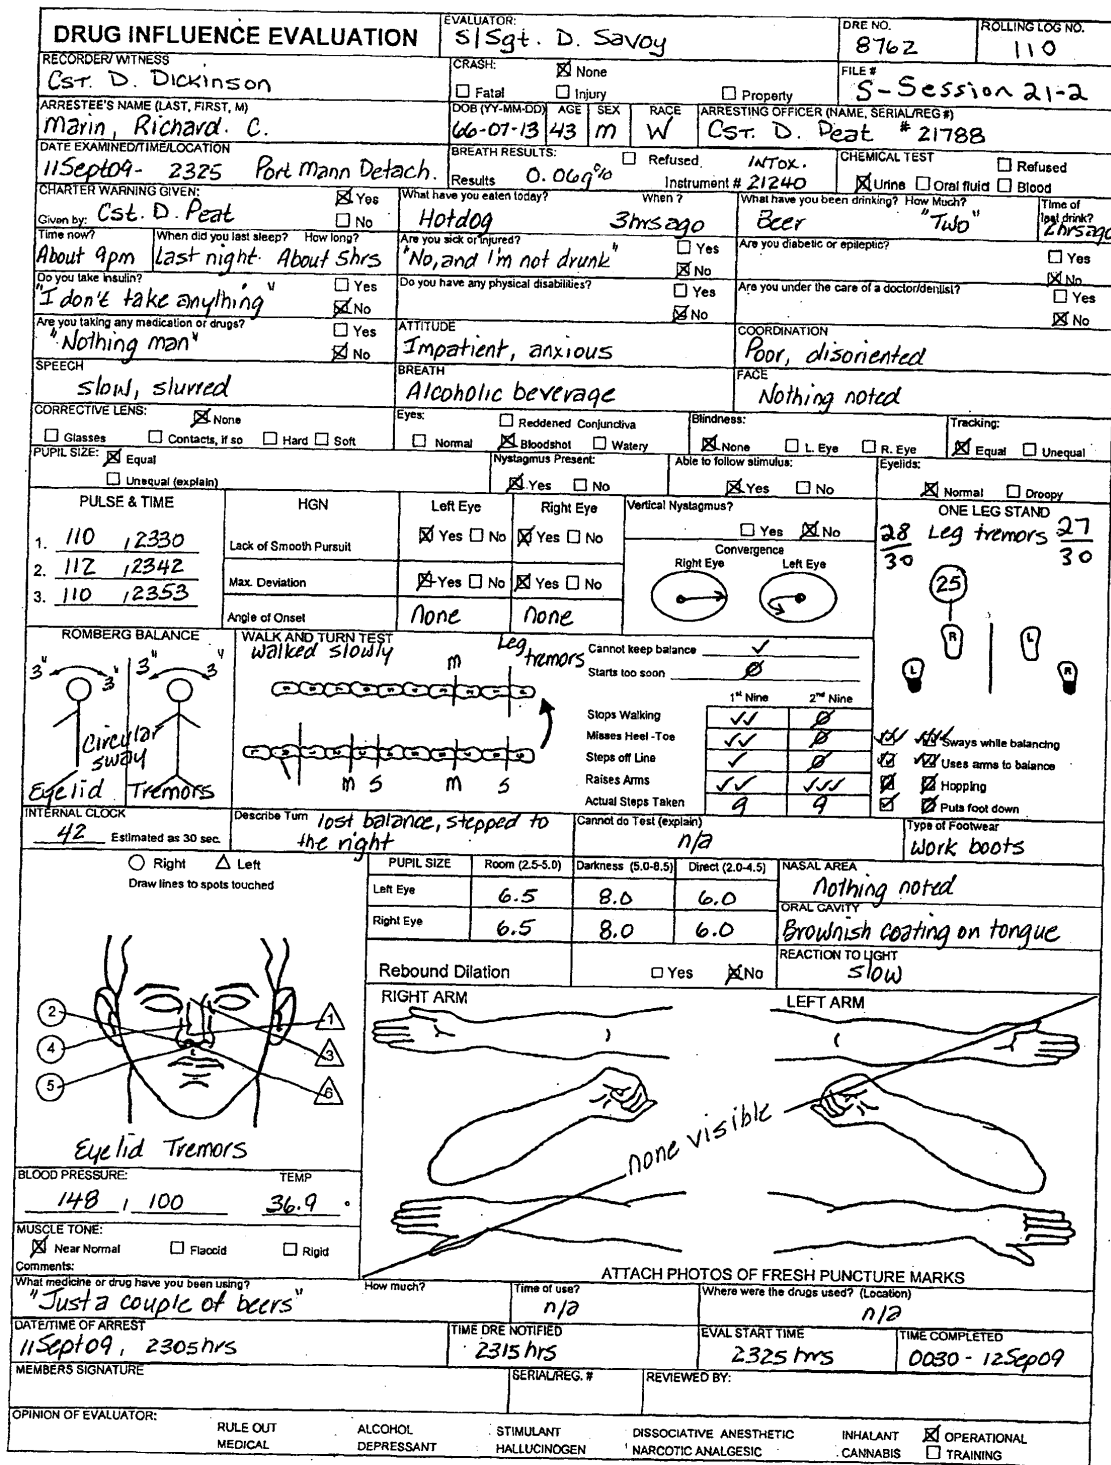 DRUG INFLUENCE EVALUATION
EVALUATOR:
S/Sgt. D. Savoy
DRE NO.
8762
ROLLING LOG NO.
110
RECORDER/ WITNESS
Cst. D. Dickinson
CRASH:
None
Fatal Injury Property
FILE #
S-Session 21-2
ARRESTEE'S NAME (LAST, FIRST, M)
Marin, Richard. C.
DOB (YY-MM-DD)
66-07-13
AGE
43
SEX
m
RACE
W
ARRESTING OFFICER (NAME, SERIAL/REG #)
Cst. D. Peat # 21788
DATE EXAMINED/TIME/LOCATION
11Sept09- 2325 Port Mann Detach.
BREATH RESULTS:
Refused INTOX.
Results 0.069% Instrument # 21240
CHEMICAL TEST
Refused
Urine Oral fluid Blood
CHARTER WARNING GIVEN:
Yes
Given by: Cst. D. Peat No
What have you eaten today? When ?
Hotdog 3hrs ago
What have you been drinking? How Much?
Beer "Two"
Time of last drink?
2hrs ago
Time now?
About 9pm
When did you last sleep? How long?
Last night. About 5hrs
Are you sick or injured?
"No, and I'm not drunk"
Yes
No
Are you diabetic or epileptic?
Yes
No
Do you take insulin?
"I don't take anything"
Yes
No
Do you have any physical disabilities?
Yes
No
Are you under the care of a doctor/dentist?
Yes
No
Are you taking any medication or drugs?
"Nothing man"
Yes
No
ATTITUDE
Impatient, anxious
COORDINATION
Poor, disoriented
SPEECH
slow, slurred
BREATH
Alcoholic beverage
FACE
Nothing noted
CORRECTIVE LENS:
None
Glasses Contacts, if so Hard Soft
Eyes:
Reddened Conjunctiva
Normal Bloodshot Watery
Blindness:
None L. Eye R. Eye
Tracking:
Equal Unequal
PUPIL SIZE: Equal
Unequal (explain)
Nystagmus Present:
Yes No
Able to follow stimulus:
Yes No
Eyelids:
Normal Droopy
PULSE & TIME
1. 110 , 2330
2. 112 , 2342
3. 110 , 2353
HGN Left Eye Right Eye
Lack of Smooth Pursuit Yes No Yes No
Max. Deviation Yes No Yes No
Angle of Onset none none
Vertical Nystagmus?
Yes No
Convergence
Right Eye Left Eye
ONE LEG STAND
28/30 Leg tremors 27/30
25
R L
L R
ROMBERG BALANCE
3" 3" 3" 3"
Circular sway
Eyelid Tremors
WALK AND TURN TEST
walked slowly
Leg tremors
m
m S m S
Cannot keep balance ✓
Starts too soon Ø
1st Nine 2nd Nine
Stops Walking ✓✓ Ø
Misses Heel -Toe ✓✓ Ø
Steps off Line ✓ Ø
Raises Arms ✓✓ ✓✓✓
Actual Steps Taken 9 9
Sways while balancing
Uses arms to balance
Hopping
Puts foot down
INTERNAL CLOCK
42 Estimated as 30 sec.
Describe Turn lost balance, stepped to
the right
Cannot do Test (explain)
n/a
Type of Footwear
Work boots
Right Left
Draw lines to spots touched
2 1
4 3
5 6
Eyelid Tremors
PUPIL SIZE Room (2.5-5.0) Darkness (5.0-8.5) Direct (2.0-4.5)
Left Eye 6.5 8.0 6.0
Right Eye 6.5 8.0 6.0
NASAL AREA
Nothing noted
ORAL CAVITY
Brownish coating on tongue
Rebound Dilation Yes No
REACTION TO LIGHT
slow
RIGHT ARM LEFT ARM
none visible
BLOOD PRESSURE:
148 , 100
TEMP
36.9 °
MUSCLE TONE:
Near Normal Flaccid Rigid
Comments:
ATTACH PHOTOS OF FRESH PUNCTURE MARKS
What medicine or drug have you been using?
"Just a couple of beers"
How much?
Time of use?
n/a
Where were the drugs used? (Location)
n/a
DATE/TIME OF ARREST
11Sept09, 2305hrs
TIME DRE NOTIFIED
2315 hrs
EVAL START TIME
2325 hrs
TIME COMPLETED
0030 - 12Sep09
MEMBERS SIGNATURE
SERIAL/REG. #
REVIEWED BY:
OPINION OF EVALUATOR:
RULE OUT ALCOHOL STIMULANT DISSOCIATIVE ANESTHETIC INHALANT OPERATIONAL
MEDICAL DEPRESSANT HALLUCINOGEN NARCOTIC ANALGESIC CANNABIS TRAINING